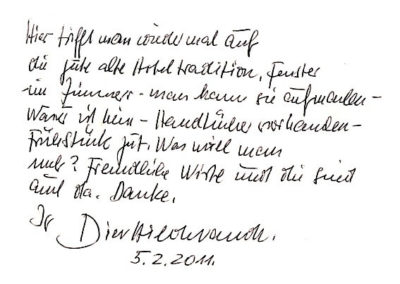 Hier trifft man wieder mal auf
die gute alte Hoteltradition, Fenster
im Zimmer - man kann sie aufmachen -
Wasser ist - Handtücher vorhanden -
Frühstück gut. Was will man
mehr? Freundliche Wirte und die sind
auch da. Danke.
Ihr Dieter Hildebrandt.
5.2.2011.